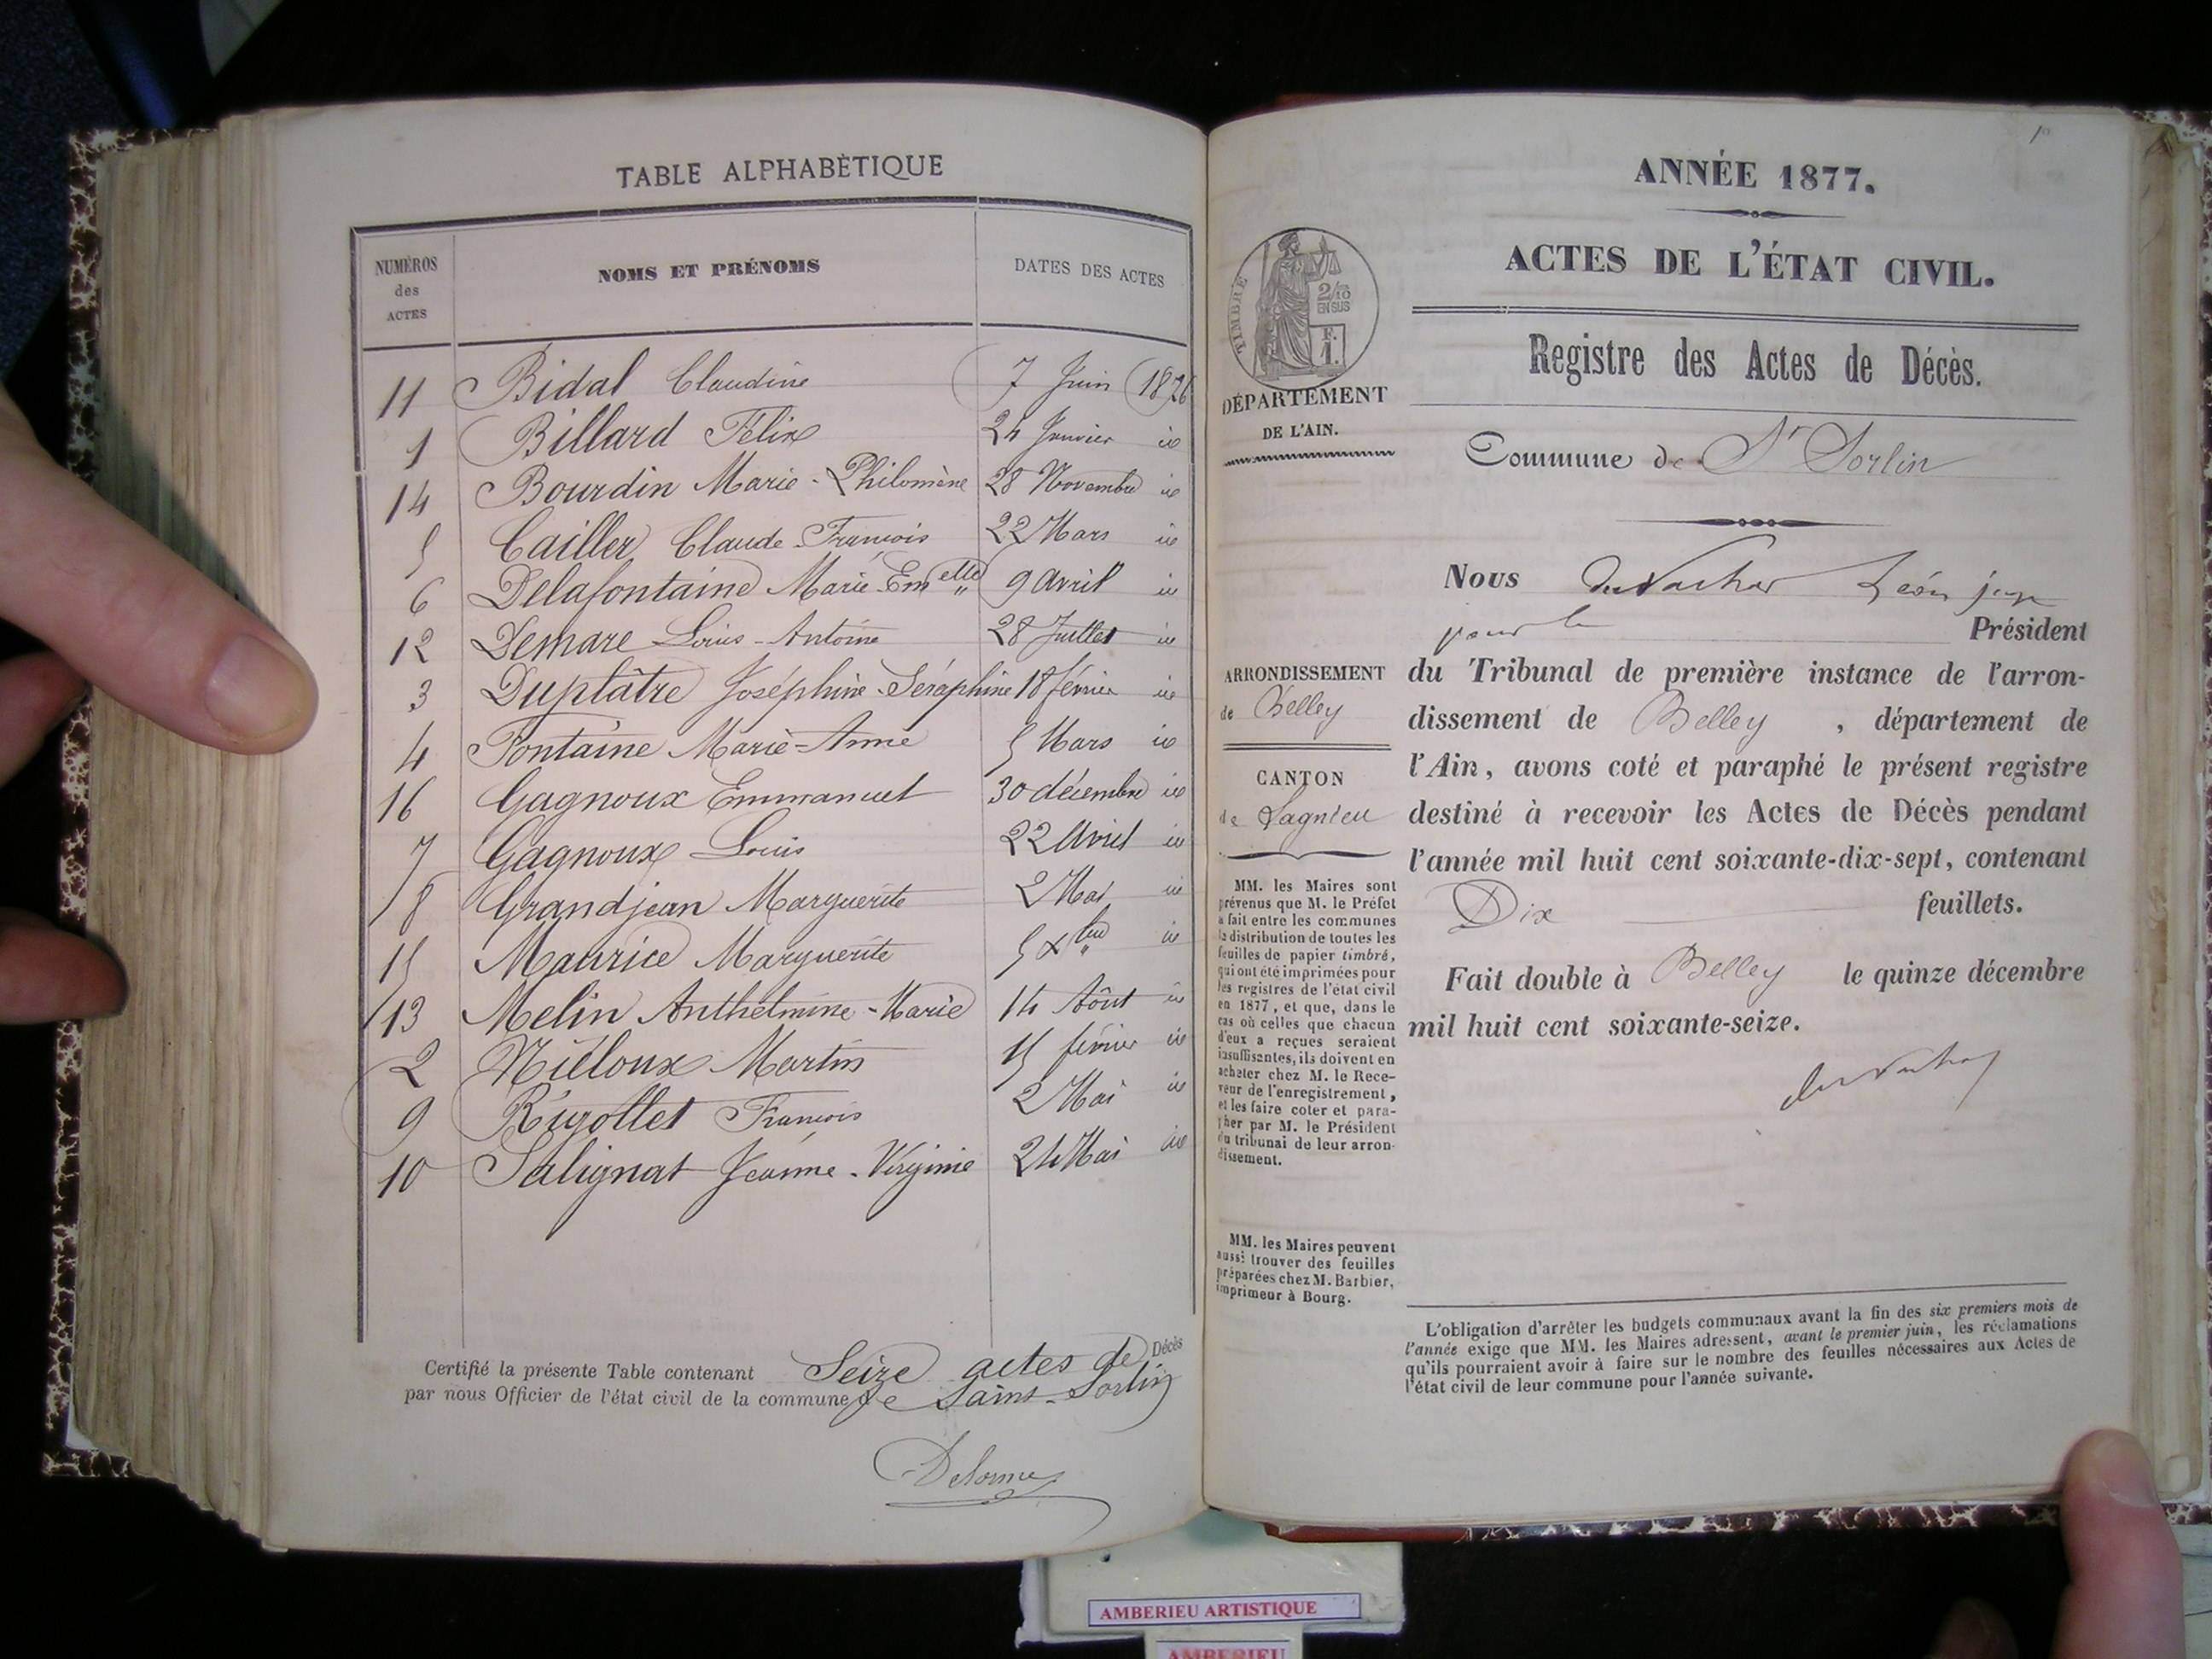 TABLE ALPHABÈTIQUE
NUMÈROS des ACTES
NOMS ET PRÉNOMS
DATES DES ACTES
11 Bidal Claudine 7 Juin 1876
1 Billard Félix 24 Janvier id
14 Bourdin Marie-Philomène 28 Novembre id
5 Cailler Claude-François 22 Mars id
6 Delafontaine Marie-Emelle 9 Avril id
12 Demare Louis-Antoine 28 Juillet id
3 Duplâtre Joséphine-Séraphine 18 février id
4 Fontaine Marie-Anne 5 Mars id
16 Gagnoux Emmanuel 30 décembre id
7 Gagnoux Louis 22 Avril id
8 Grandjean Marguerite 2 Mai id
15 Maurice Marguerite 5 Xbre id
13 Melin Anthelmine-Marie 14 Août id
2 Niéloux Martin 15 février id
9 Rigollet François 2 Mai id
10 Salignat Jeanne-Virginie 24 Mai id
Certifié la présente Table contenant Seize actes de Décès
par nous Officier de l'état civil de la commune de Saint-Sorlin
Delorme
1
ANNÉE 1877.
ACTES DE L'ÉTAT CIVIL.
Registre des Actes de Décès.
TIMBRE
2/10
EN SUS
F.
1.
DÉPARTEMENT
DE L'AIN.
Commune de St Sorlin
Nous Léon juge
pour le Président
ARRONDISSEMENT
de Belley
CANTON
de Lagnieu
du Tribunal de première instance de l'arron-
dissement de Belley, département de
l'Ain, avons coté et paraphé le présent registre
destiné à recevoir les Actes de Décès pendant
l'année mil huit cent soixante-dix-sept, contenant
Dix feuillets.
Fait double à Belley le quinze décembre
mil huit cent soixante-seize.
MM. les Maires sont
prévenus que M. le Préfet
a fait entre les communes
la distribution de toutes les
feuilles de papier timbré,
qui ont été imprimées pour
les registres de l'état civil
en 1877, et que, dans le
cas où celles que chacun
d'eux a reçues seraient
insuffisantes, ils doivent en
acheter chez M. le Rece-
veur de l'enregistrement,
et les faire coter et para-
pher par M. le Président
du tribunal de leur arron-
dissement.
MM. les Maires peuvent
aussi trouver des feuilles
préparées chez M. Barbier,
imprimeur à Bourg.
L'obligation d'arrêter les budgets communaux avant la fin des six premiers mois de
l'année exige que MM. les Maires adressent, avant le premier juin, les réclamations
qu'ils pourraient avoir à faire sur le nombre des feuilles nécessaires aux Actes de
l'état civil de leur commune pour l'année suivante.
AMBERIEU ARTISTIQUE
AMBERIEU